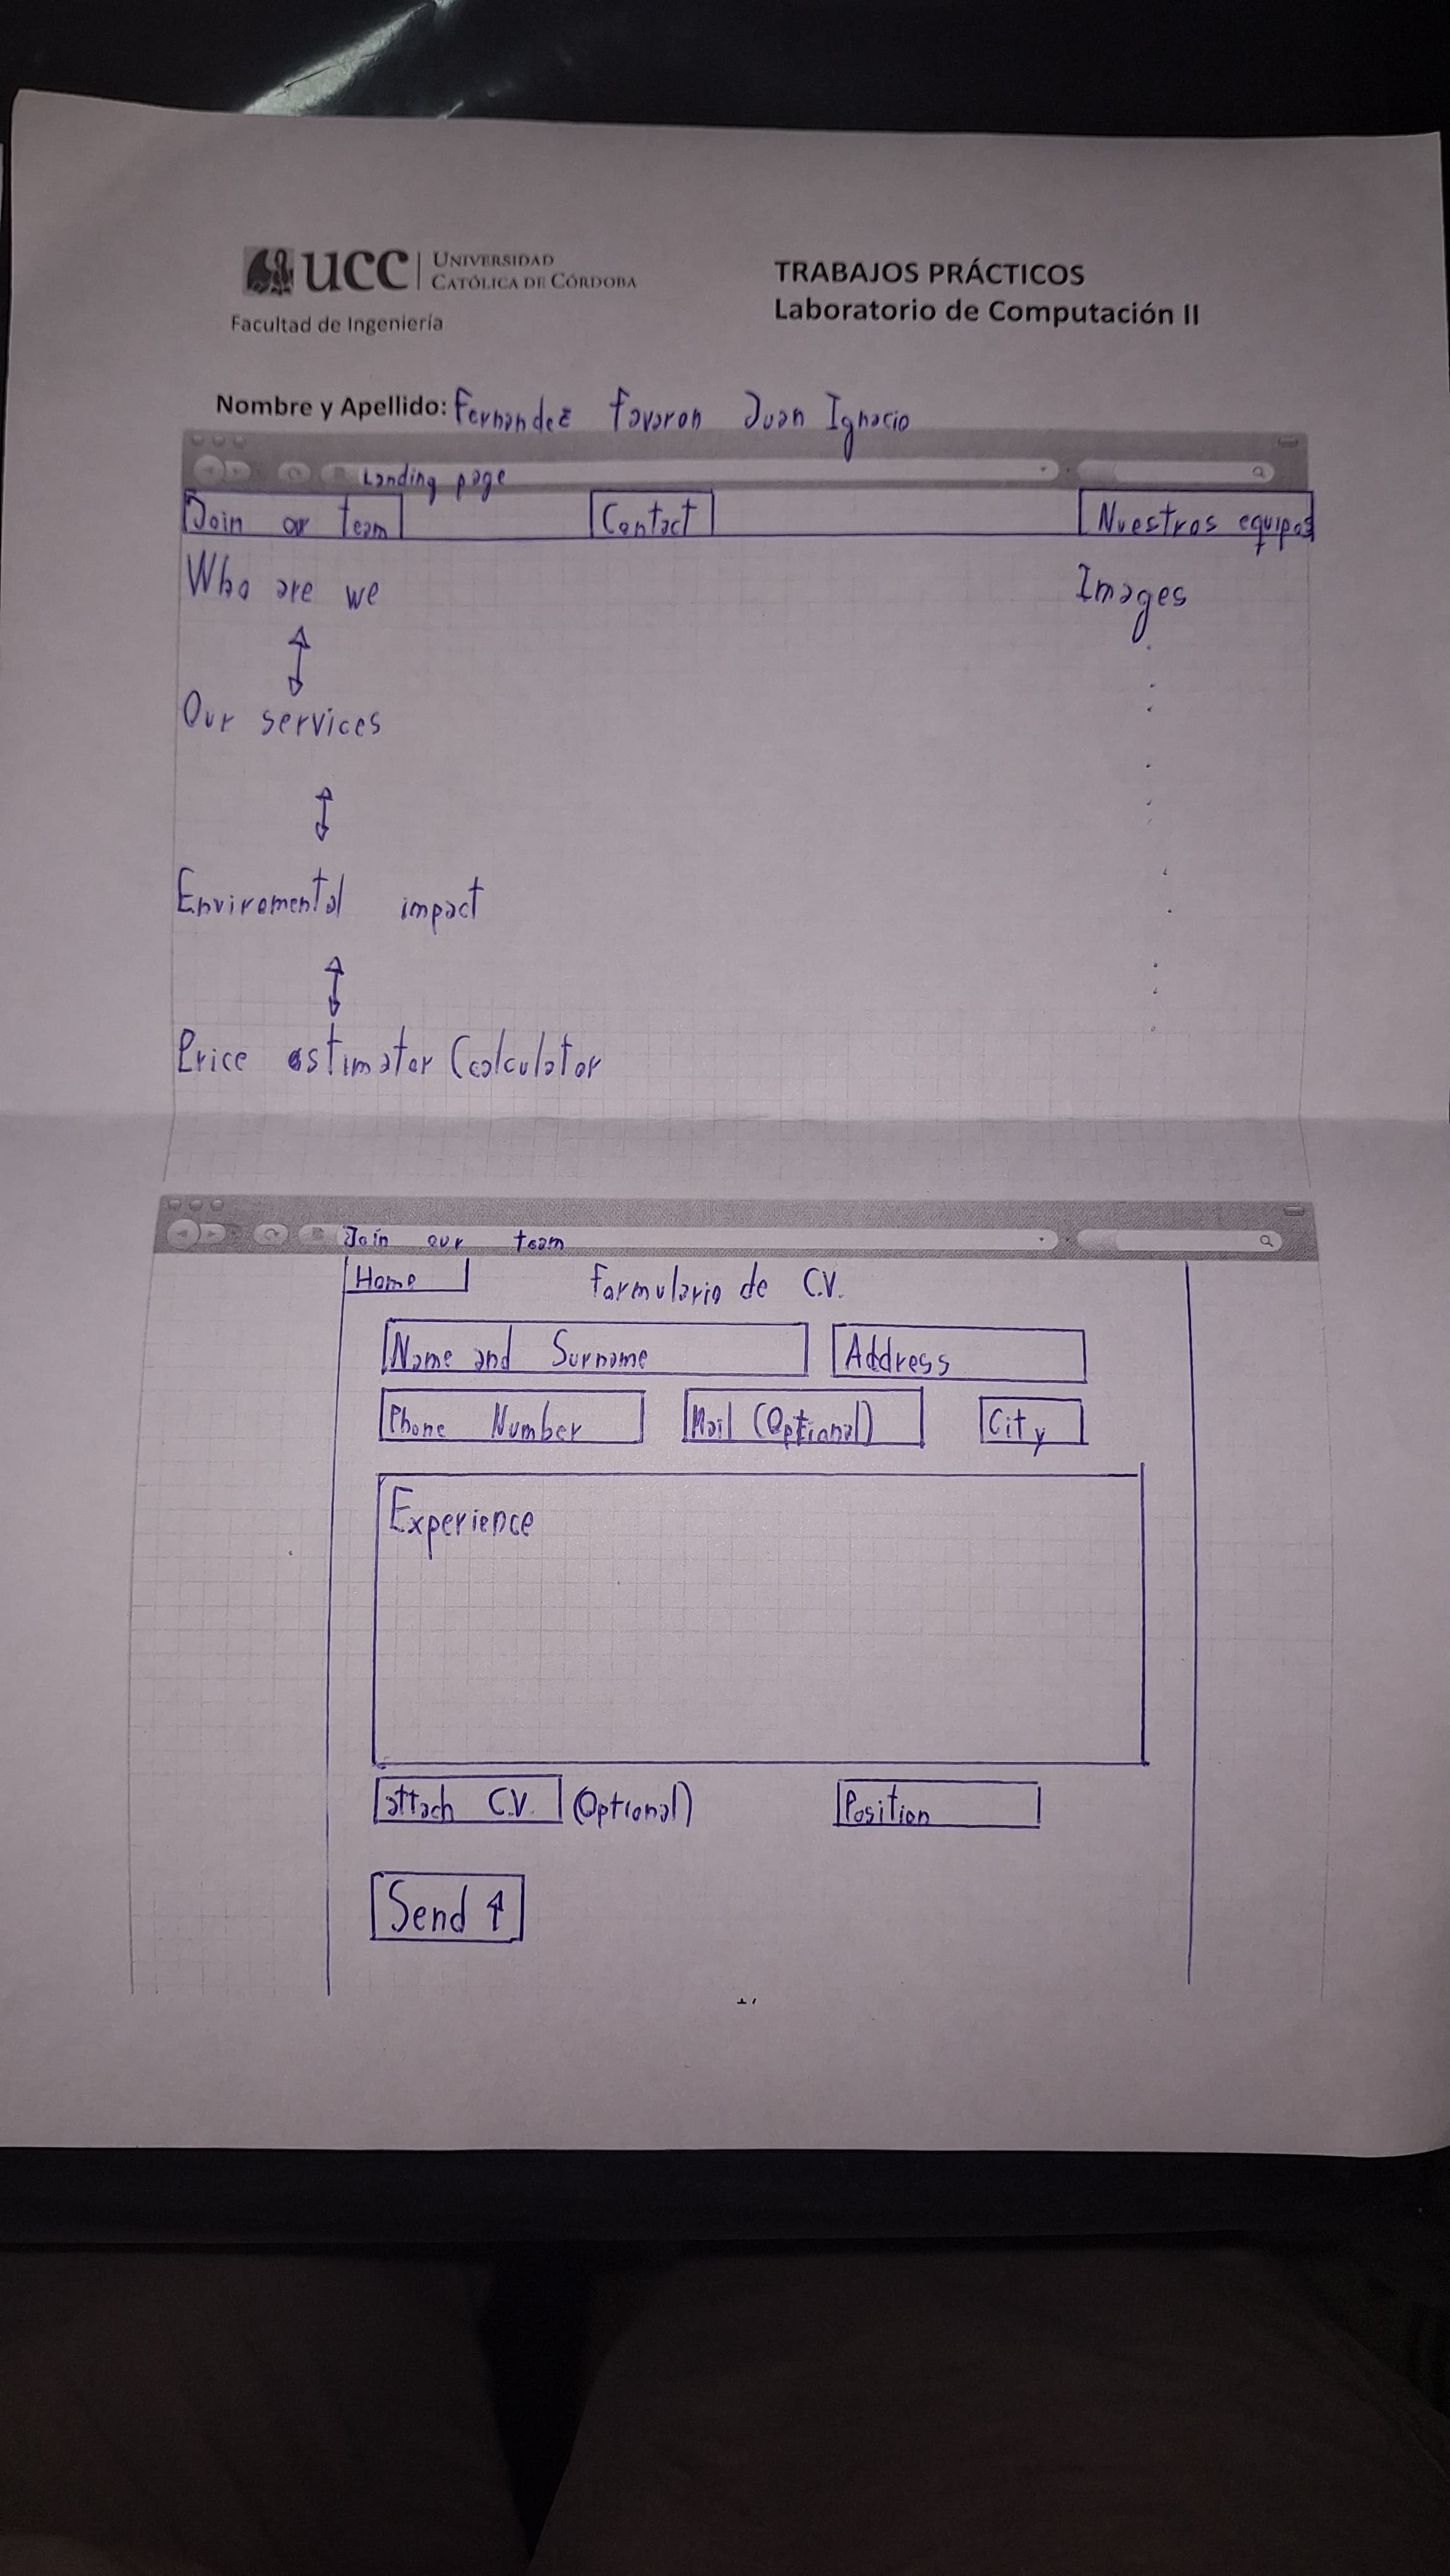 UCC UNIVERSIDAD CATÓLICA DE CÓRDOBA
Facultad de Ingeniería
TRABAJOS PRÁCTICOS
Laboratorio de Computación II
Nombre y Apellido: Fernandez Favaron Juan Ignacio
Landing page
Join our team Contact Nuestros equipos
Who are we Images
Our services
Enviromental impact
Price estimator Calculator
Join our team
Home Formulario de C.V.
Name and Surname Address
Phone Number Mail (Optional) City
Experience
attach C.V. (Optional) Position
Send ↑